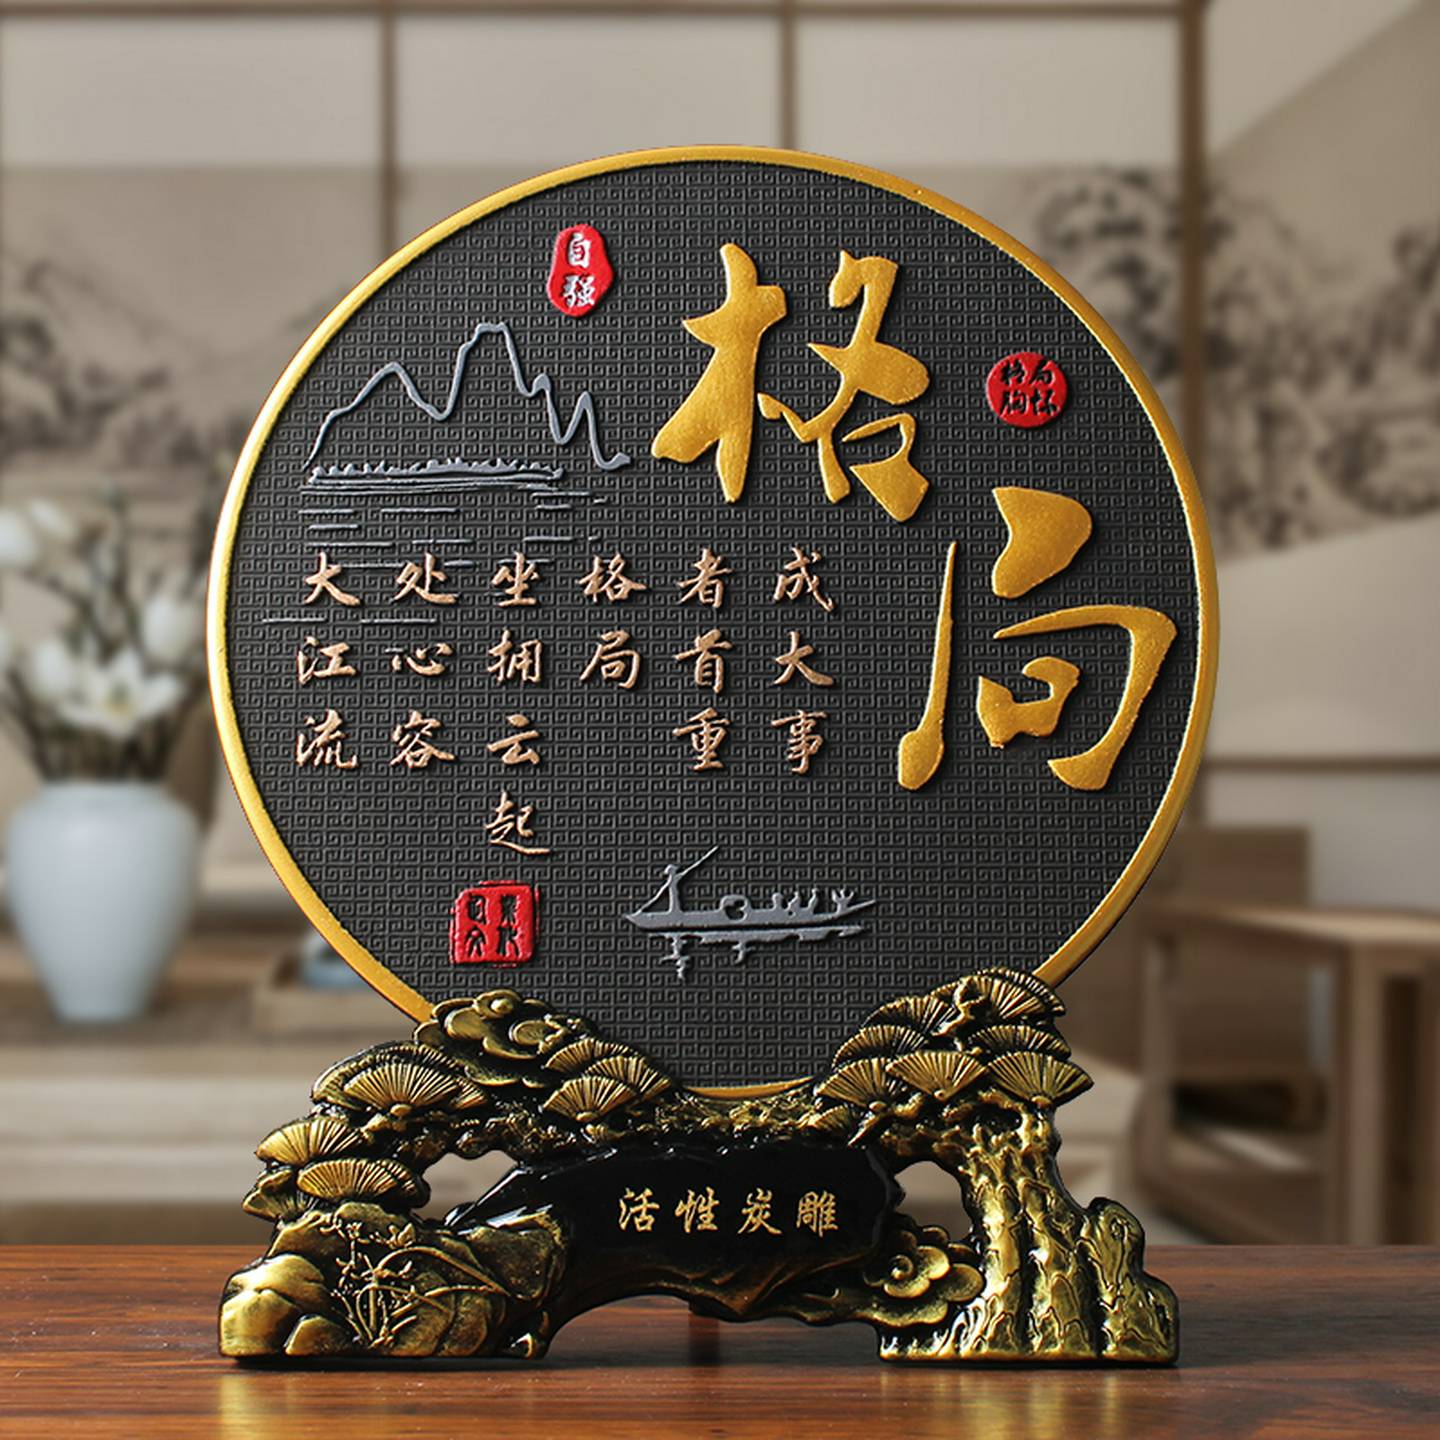 格局
自强
格局
胸怀
成大事
者首重
格局
坐拥云起
处心容
大江流
活性炭雕